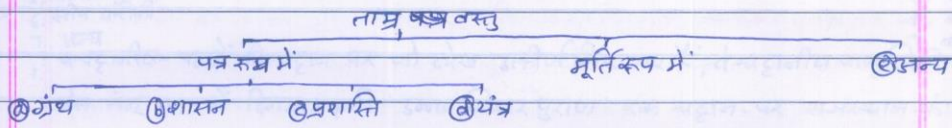 ताम्र वस्तु
पत्र रूप में मूर्ति रूप में ⓔ अन्य
ⓐ ग्रंथ ⓑ शासन ⓒ प्रशास्ति ⓓ यंत्र